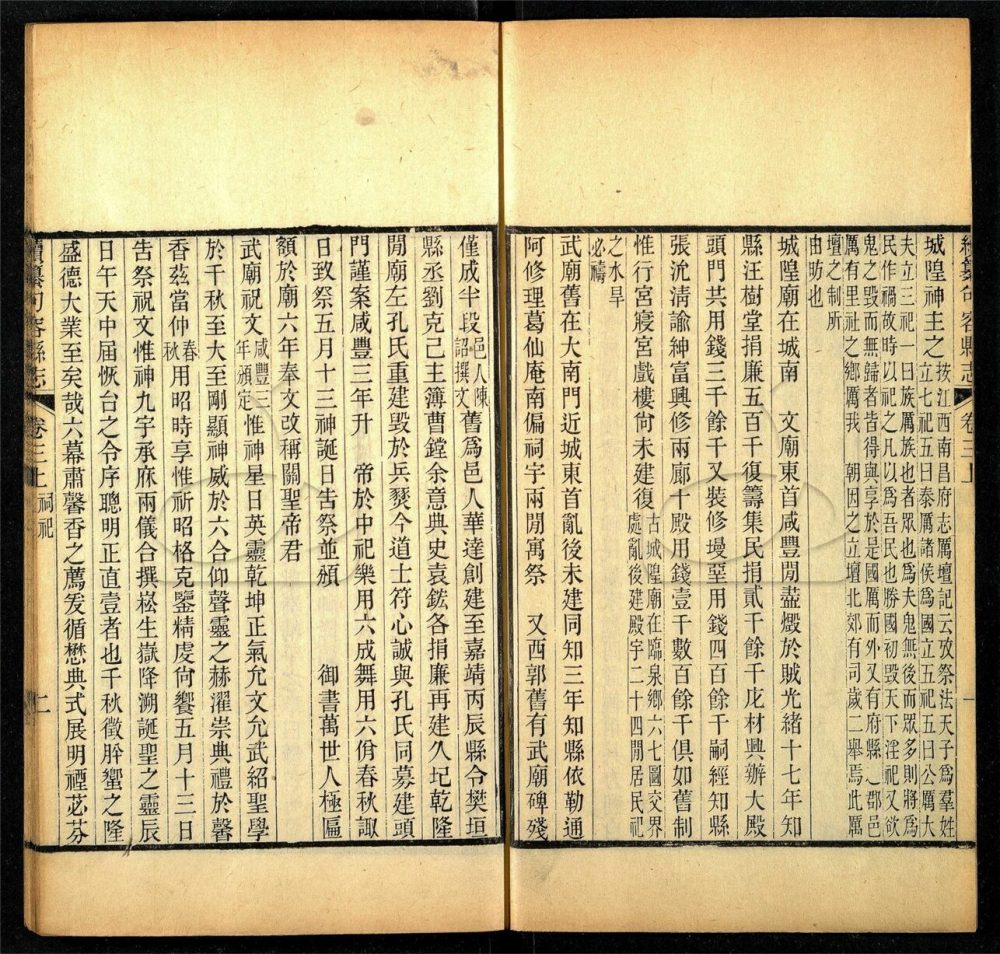 續纂句容縣志 卷三上 一
城隍神主之按江西南昌府志厲壇記云攷祭法天子爲羣姓
立七祀五曰泰厲諸侯爲國立五祀五曰公厲大
夫立三祀一曰族厲族也者眾也爲夫鬼無後而眾多則將爲
民作禍故時以祀之凡以爲吾民也勝國初毀天下淫祀又欲
鬼之毀而無歸者皆得與享於是國厲而外又有府縣 郡邑
厲有里社之鄉厲我 朝因之立壇北郊有司歲二舉焉此厲
壇之制所
由昉也
城隍廟在城南 文廟東首咸豐閒藎燬於賊光緒十七年知
縣汪樹堂捐廉五百千復籌集民捐貳千餘千庀材興辦大殿
頭門共用錢三千餘千又裝修墁堊用錢四百餘千嗣經知縣
張沇淸諭紳富興修兩廊十殿用錢壹千數百餘千俱如舊制
惟行宮寢宮戲樓尙未建復古城隍廟在臨泉鄉六七圖交界
處亂後建殿宇二十四閒居民祀
之水旱
必禱
武廟舊在大南門近城東首亂後未建同知三年知縣依勒通
阿修理葛仙庵南偏祠宇兩閒寓祭 又西郭舊有武廟碑殘
僅成半段邑人陳
詔撰文舊爲邑人華達創建至嘉靖丙辰縣令樊垣
縣丞劉克己主簿曹鏜余意典史袁鋐各捐廉再建久圮乾隆
閒廟左孔氏重建毀於兵燹今道士符心誠與孔氏同募建頭
門謹案咸豐三年升 帝於中祀樂用六成舞用六佾春秋諏
日致祭五月十三神誕日吿祭並頒 御書萬世人極匾
額於廟六年奉文改稱關聖帝君
武廟祝文咸豐三
年頒定惟神星日英靈乾坤正氣允文允武紹聖學
於千秋至大至剛顯神威於六合仰聲靈之赫濯崇典禮於馨
香茲當仲春
秋用昭時享惟祈昭格克鑒精虔尙饗五月十三日
吿祭祝文惟神九宇承庥兩儀合撰崧生嶽降溯誕聖之靈辰
日午天中届恢台之令序聰明正直壹者也千秋徵肸蠁之隆
盛德大業至矣哉六幕肅馨香之薦爰循懋典式展明禋苾芬
續纂句容縣志 卷三上 祠祀 二